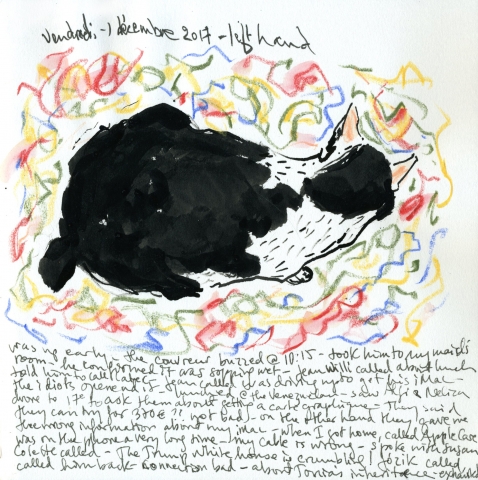 vendredi - 1 décembre 2017 - left hand
was up early - the couvreur buzzed @ 10:15 - took him to my maid's
room - he confirmed it was sopping wet - Jean Will called about lunch
told him to call Labets - Jean called was driving up to get his iMac -
the idiots opened it - lunched @ the Venezuelan - saw and Neliza
drove to 17e to ask them about getter a carte graphique - They said
they can try for 350€ ?! not bad - on the other hand they gave me
the wrong information about my iMac - when I got home, called Apple Care
was on the phone a very long time - my cable is wrong - spoke with Susan
Colette called - The Trump White house is crumbling! called
called him back - connection bad - about inheritance - exhausted